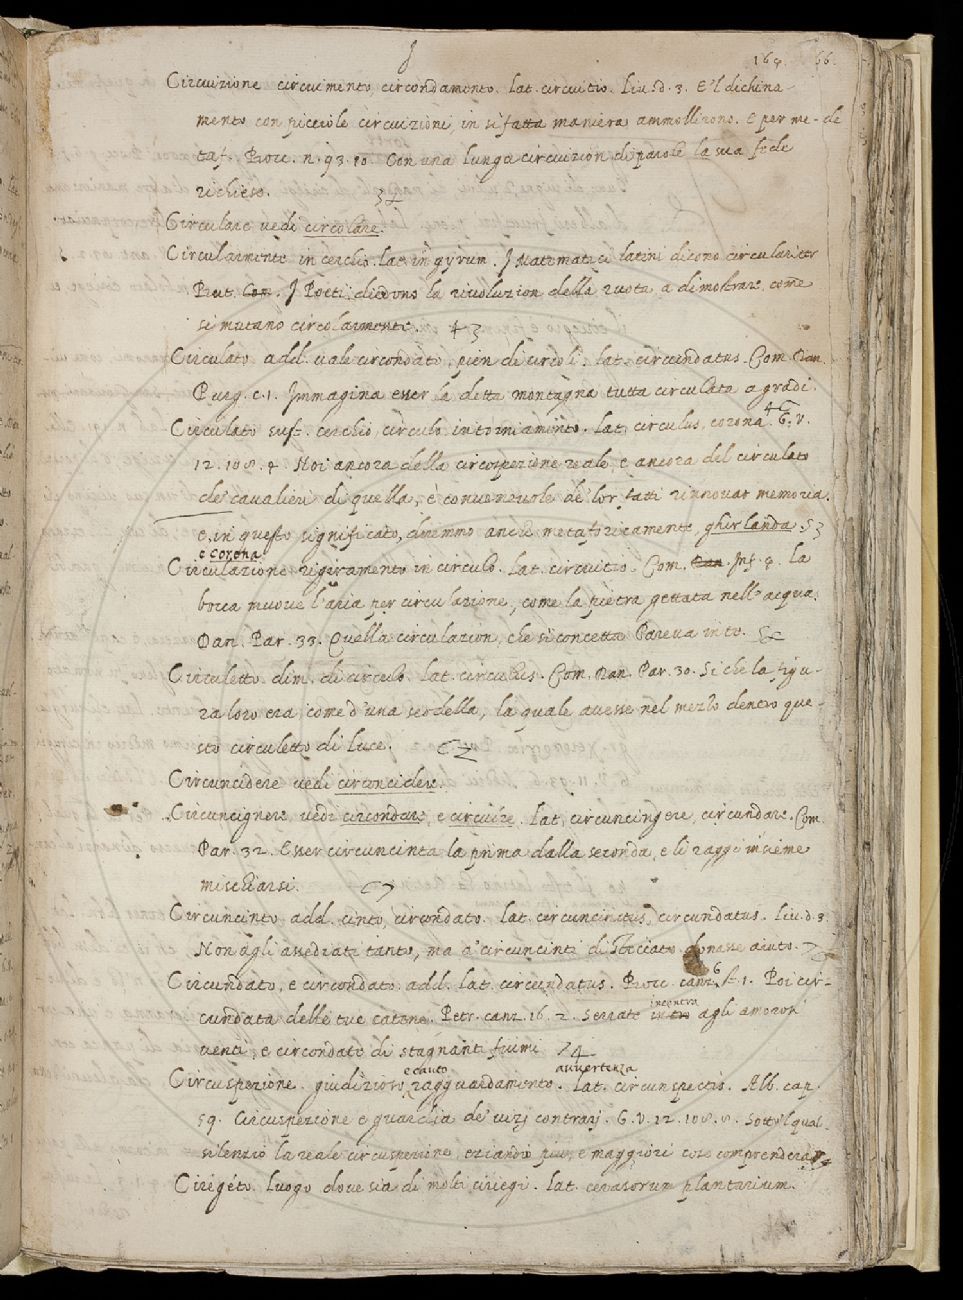 164. 66.
Circuizione circuimento, circondamento. Lat. circuitio. Liv. d. 3. E'l dichina-
mento con piccole circuizioni, in sì fatta maniera ammollirono. E per me-
taf. Bocc. n. 93. 10. Con una lunga circuizion di parole la sua fede
richiese.
Circulare vedi circolare.
Circularmente in cerchio. Lat. in gyrum. I Matematici latini dicono circulariter
But. I Poeti dicono la rivoluzion della ruota a dimostrare come
si mutano circolarmente.
Circulato add. vale circondato, pien di circoli. Lat. circundatus. Com. Dan.
Purg. c. 1. Immagina esser la detta montagna tutta circulata a gradi.
Circulato sust. cerchio, circulo intorniamento. Lat. circulus, corona. G. V.
12. 108. 4. Noi ancora della circospezione reale, e ancora del circulato
de' cavalieri di quella, è convenevole de' lor fatti rinnovar memoria.
e in questo significato, diremmo anche metaforicamente, ghirlanda.
e corona
Circulazione rigiramento in circulo. Lat. circuitio. Com. Dan. Inf. 9. La
bocca muove l'aria per circulazione, come la pietra gettata nell'acqua.
Dan. Par. 33. Quella circulazion, che sì concetta Pareva in te.
Circuletto. dim. di circulo. Lat. circulus. Com. Dan. Par. 30. Si che la figu-
ra loro era, come d'una scodella, la quale avesse nel mezzo dentro que-
sto circuletto di luce.
Circuncidere vedi circoncidere.
Circuncignere, vedi circondare, e circuire. Lat. circuncingere, circundare. Com.
Par. 32. Esser circuncinta la prima dalla seconda, e li raggi insieme
mischiarsi.
Circuncinto add. cinto, circondato. Lat. circuncinctus, circundatus. Liv. d. 3.
Non agli assediati tanto, ma a' circuncinti di steccato donasse aiuto.
Circundato, e circondato. add. Lat. circundatus. Bocc. canz. 6. 1. Poi cir-
cundata delle tue catene. Petr. canz. 16. 2. Serrate incontra agli amorosi
venti, e circondate di stagnanti fiumi
Circuspezione. giudizioso, e cauto ragguardamento. avvertenza Lat. circunspectio. Alb. cap.
59. Circuspezione è guardia de' vizj contrarj. G. V. 12. 108. 8. Sotto'l qual
silenzio la reale circuspezione, eziandio più, e maggiori cose comprenderà.
Ciriegéto. Luogo dove sia di molti ciriegi. Lat. cerasorum plantarium.